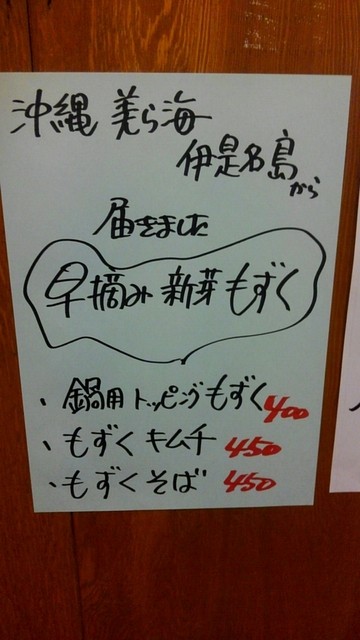 沖縄 美ら海
伊是名島
から
届きました
早摘み 新芽 もずく
・鍋用トッピングもずく 400
・もずくキムチ 450
・もずくそば 450